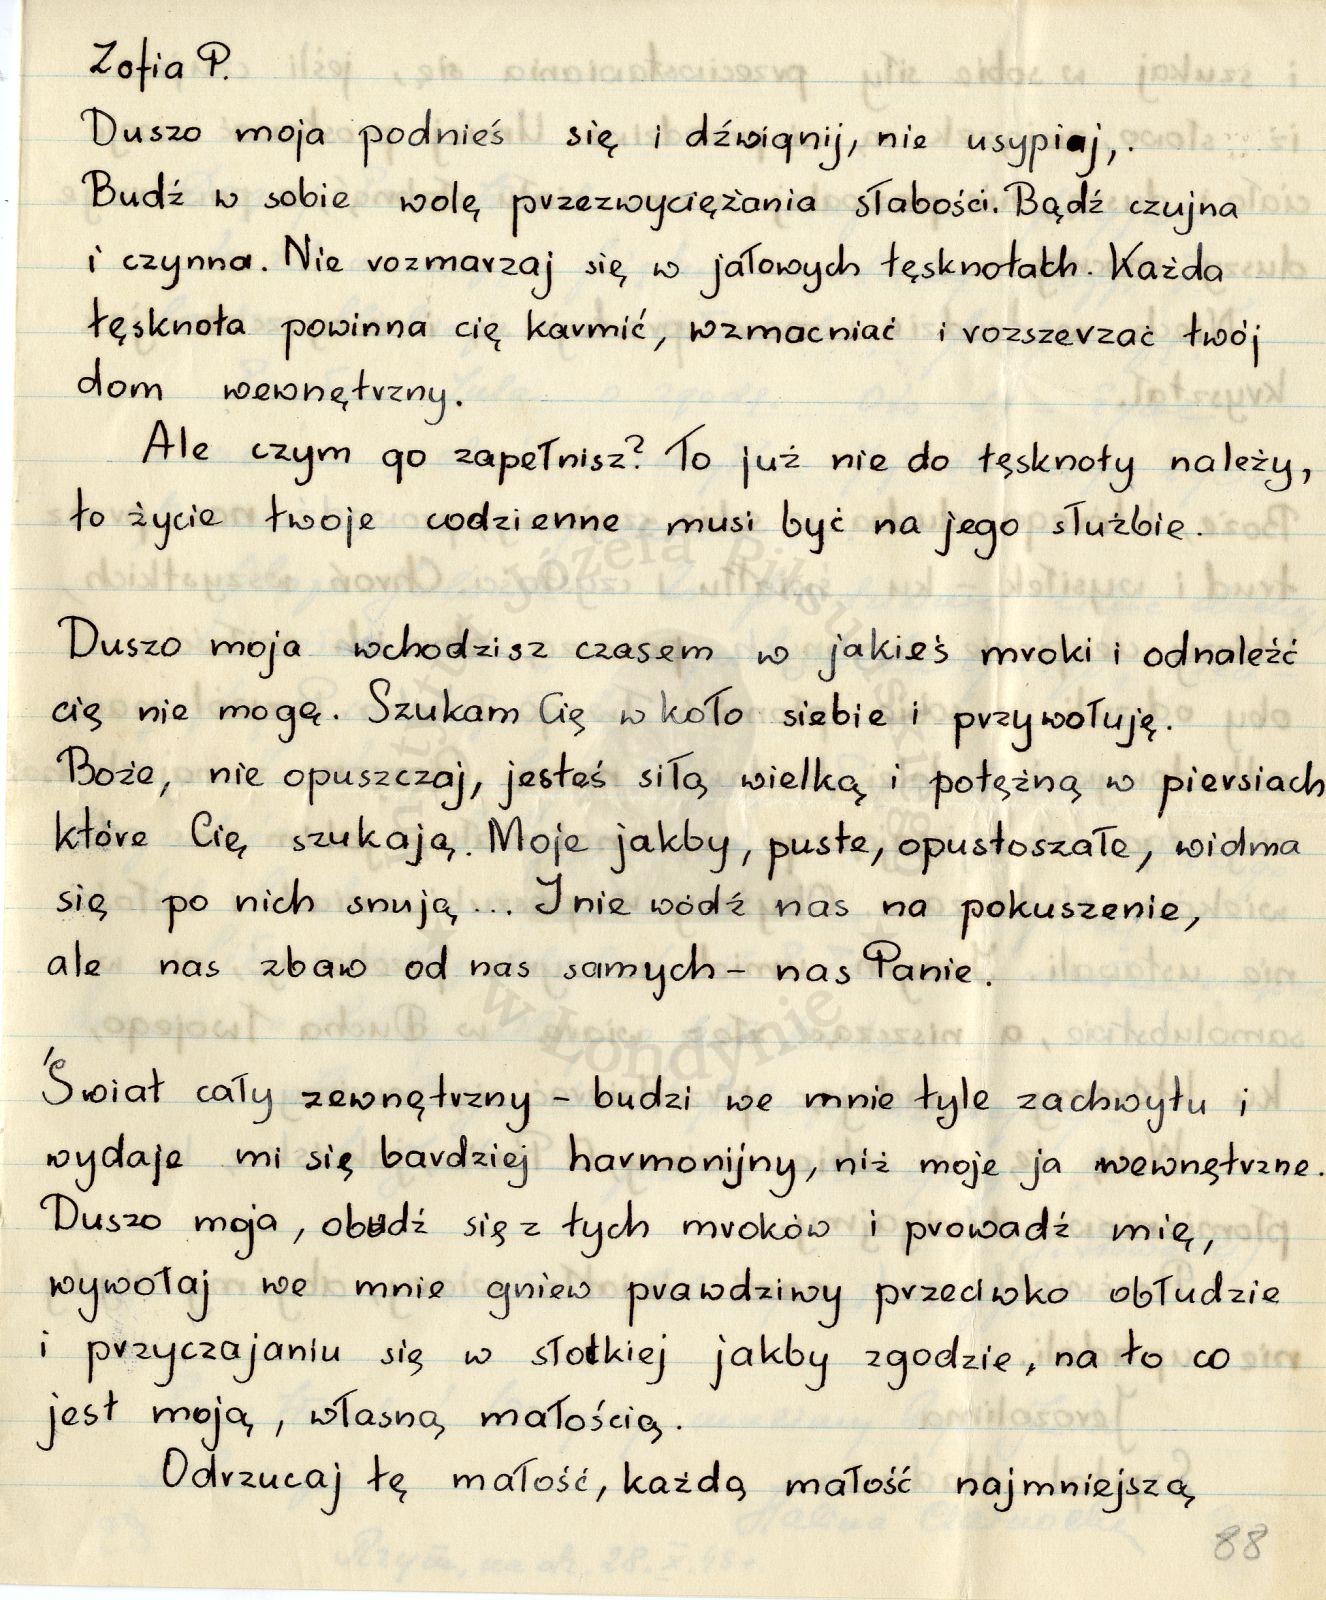 Zofia P.
Duszo moja podnieś się i dźwignij, nie usypiaj,.
Budź w sobie wolę przezwyciężania słabości. Bądź czujna
i czynna. Nie rozmarzaj się w jałowych tęsknotach. Każda
tęsknota powinna cię karmić, wzmacniać i rozszerzać twój
dom wewnętrzny.
Ale czym go zapełnisz? To już nie do tęsknoty należy,
to życie twoje codzienne musi być na jego służbie.
Duszo moja wchodzisz czasem w jakieś mroki i odnaleźć
cię nie mogę. Szukam Cię w koło siebie i przywołuję.
Boże, nie opuszczaj, jesteś siłą wielką i potężną w piersiach
które Cię szukają. Moje jakby, puste, opustoszałe, widma
się po nich snują... I nie wódź nas na pokuszenie,
ale nas zbaw od nas samych - nas Panie.
Świat cały zewnętrzny - budzi we mnie tyle zachwytu i
wydaje mi się bardziej harmonijny, niż moje ja wewnętrzne.
Duszo moja, obudź się z tych mroków i prowadź mię,
wywołaj we mnie gniew prawdziwy przeciwko obłudzie
i przyczajaniu się w słotkiej jakby zgodzie, na to co
jest moją, własną małością.
Odrzucaj tę małość, każdą małość najmniejszą
88